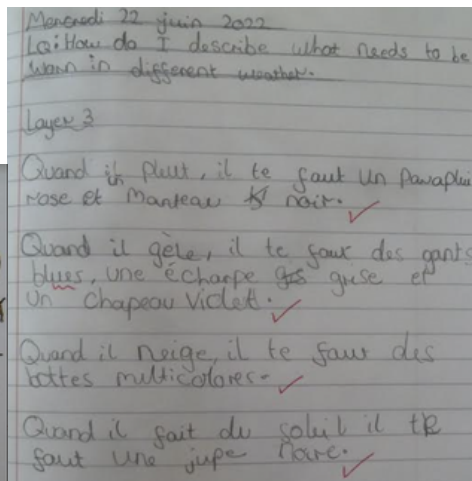 Mercredi 22 juin 2022
LQ: How do I describe what needs to be
worn in different weather.
Layer 3
Quand il pleut, il te faut un parapluie
rose et manteau noir.
Quand il gèle, il te faut des gants
blues, une écharpe grise et
un chapeau violet.
Quand il neige, il te faut des
bottes multicolores.
Quand il fait du soleil il te
faut une jupe